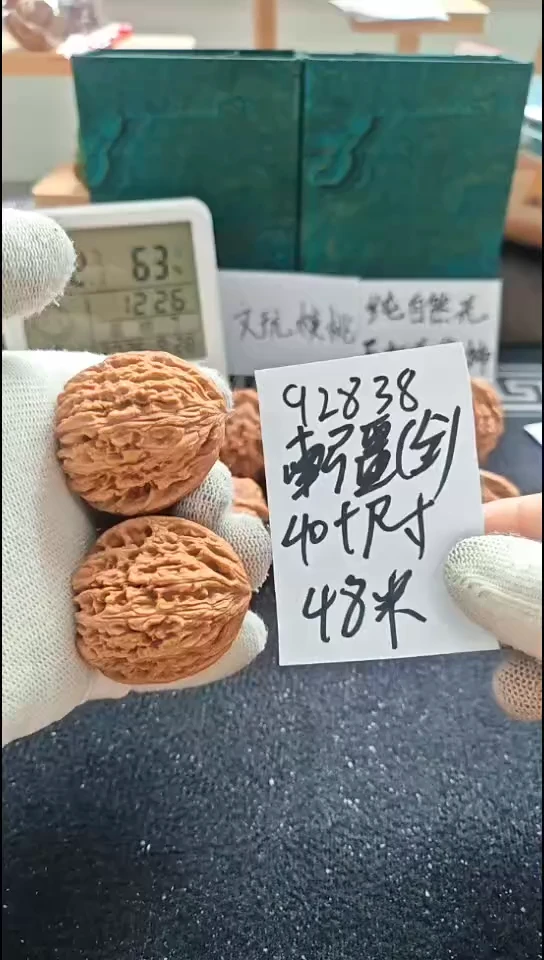 63
1226
文玩核桃
纯自然花
92838
新疆(全)
40+尺寸
48米